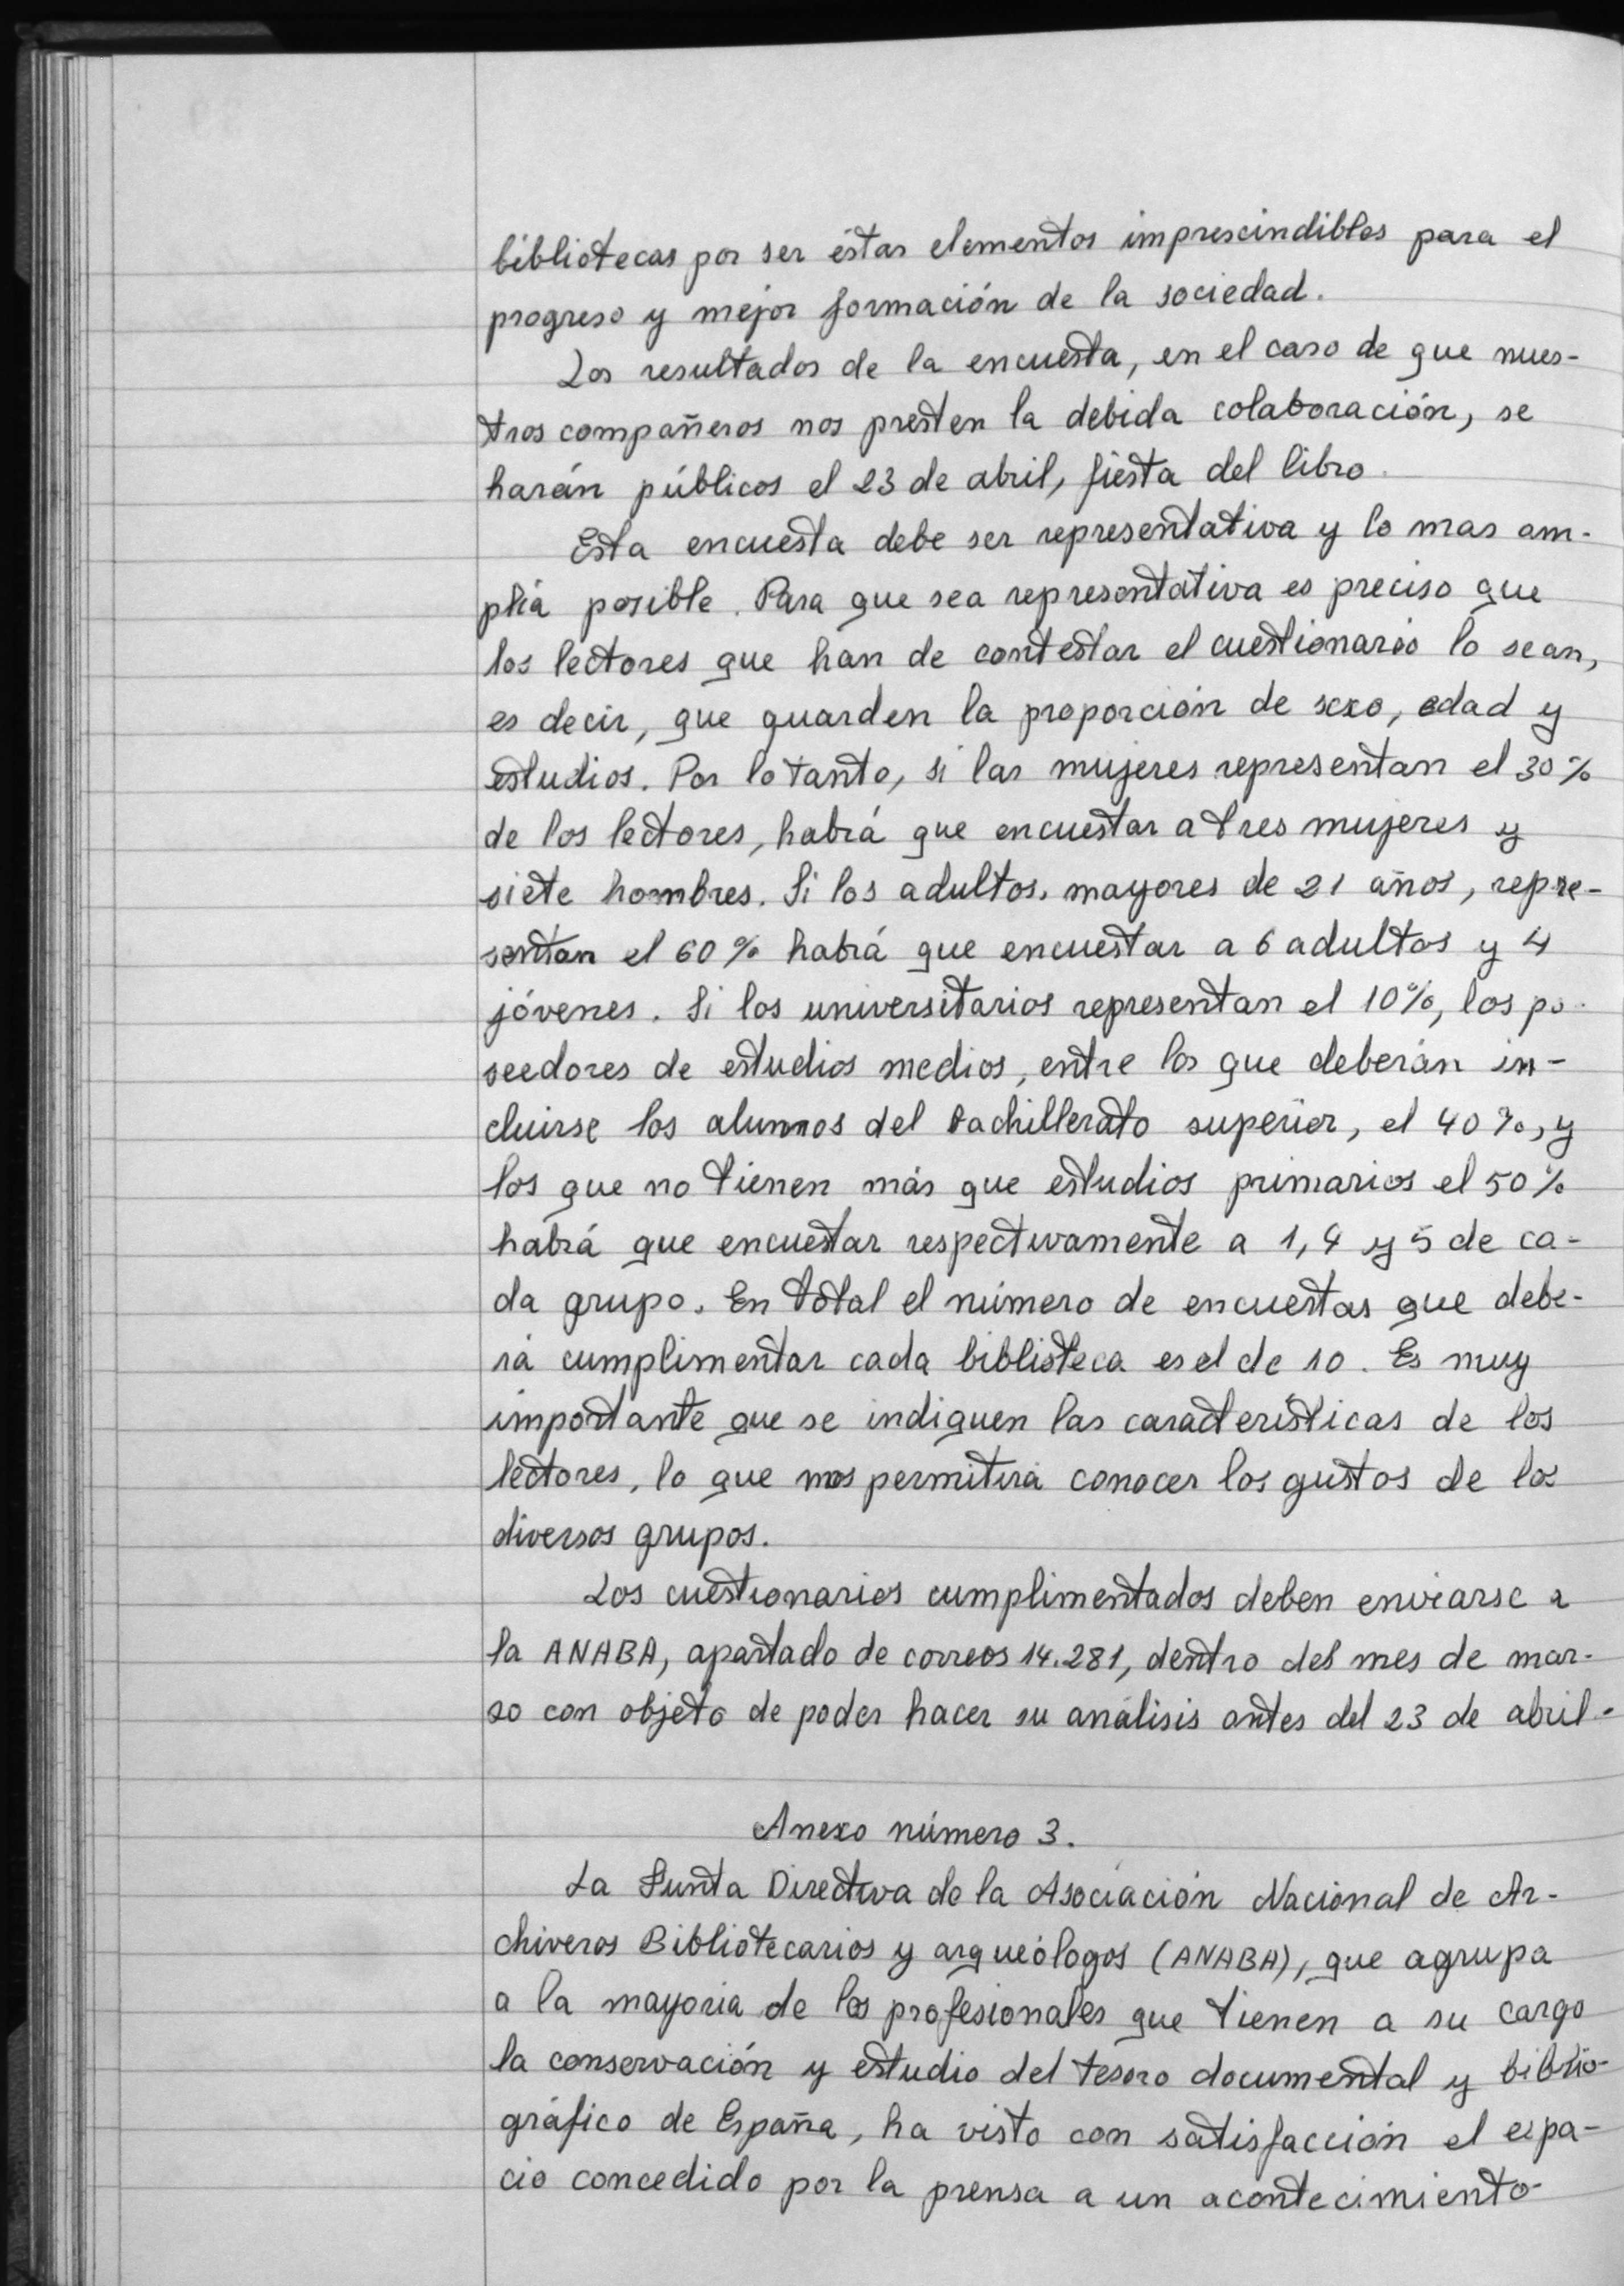 bibliotecas por ser éstas elementos imprescindibles para el
progreso y mejor formación de la sociedad.
Los resultados de la encuesta, en el caso de que nues-
tros compañeros nos presten la debida colaboración, se
harán públicos el 23 de abril, fiesta del libro.
Esta encuesta debe ser representativa y lo mas am-
plia posible. Para que sea representativa es preciso que
los lectores que han de contestar el cuestionario lo sean,
es decir, que guarden la proporción de sexo, edad y
estudios. Por lo tanto, si las mujeres representan el 30%
de los lectores, habrá que encuestar a tres mujeres y
siete hombres. Si los adultos, mayores de 21 años, repre-
sentan el 60% habrá que encuestar a 6 adultos y 4
jóvenes. Si los universitarios representan el 10%, los po-
seedores de estudios medios, entre los que deberán in-
cluirse los alumnos del bachillerato superior, el 40%, y
los que no tienen más que estudios primarios el 50%
habrá que encuestar respectivamente a 1, 4 y 5 de ca-
da grupo. En total el número de encuestas que debe-
rá cumplimentar cada biblioteca es el de 10. Es muy
importante que se indiquen las características de los
lectores, lo que nos permitirá conocer los gustos de los
diversos grupos.
Los cuestionarios cumplimentados deben enviarse a
la ANABA, apartado de correos 14.281, dentro del mes de mar-
zo con objeto de poder hacer su análisis antes del 23 de abril.
Anexo número 3.
La Junta Directiva de la Asociación Nacional de Ar-
chiveros Bibliotecarios y arqueólogos (ANABA), que agrupa
a la mayoria de los profesionales que tienen a su cargo
la conservación y estudio del tesoro documental y biblio-
gráfico de España, ha visto con satisfacción el espa-
cio concedido por la prensa a un acontecimiento